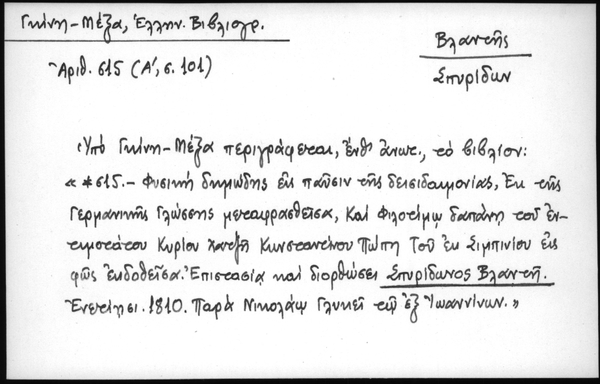 Γκίνη-Μέξα, Ἑλλην. Βιβλιογρ.
Βλαντῆς
Σπυρίδων
Ἀριθ. 615 (Α', σ. 101)
Ὑπὸ Γκίνη-Μέξα περιγράφεται, ἔνθ' ἄνωτ., τὸ βιβλίον:
« *615.- Φυσικὴ δημώδης εἰς παῦσιν τῆς δεισιδαιμονίας, Ἐκ τῆς
Γερμανικῆς Γλώσσης μεταφρασθεῖσα, Καὶ Φιλοτίμῳ δαπάνῃ τοῦ ἐν-
τιμοτάτου Κυρίου χατζῆ Κωνσταντίνου Πώπη Τοῦ ἐκ Σιμπινίου εἰς
φῶς ἐκδοθεῖσα. Ἐπιστασίᾳ καὶ διορθώσει Σπυρίδωνος Βλαντῆ.
Ἐνετίησι. 1810. Παρὰ Νικολάῳ Γλυκεῖ τῷ ἐξ Ἰωαννίνων. »